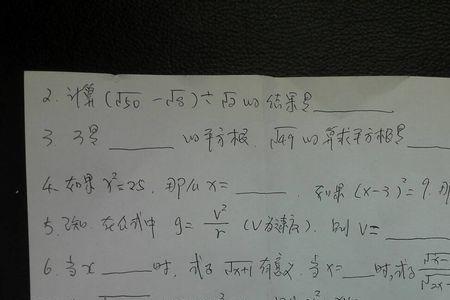 2. 计算(√50 -√8)÷√2 的结果是______
3. 3是______的平方根. √49 的算术平方根是______
4. 如果 x²=25. 那么 x=______. 如果 (x-3)²=9. 那
5. 已知. 在公式中 g= v²/r (V为速度). 则 V=______
6. 当x____时. 式子 √x+1 有意义. 当x=____时,式子 √x-